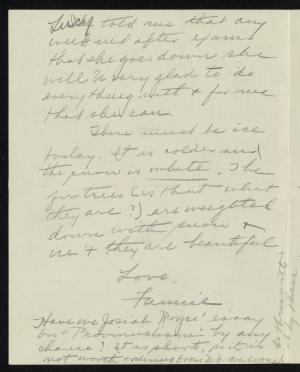 told me that any
week end after exams
that she goes down she
will be very glad to do
everything with & for me
that she can.
There must be ice
today. It is colder and
the snow is white. The
fir trees (is that what
they are?) are weighted
down with snow &
ice & they are beautiful
Love,
Fannie
Have we Josiah Royce' essay
on "Provincialism" by any
chance? It is short, so it is
not worth ordering from N.Y. we would